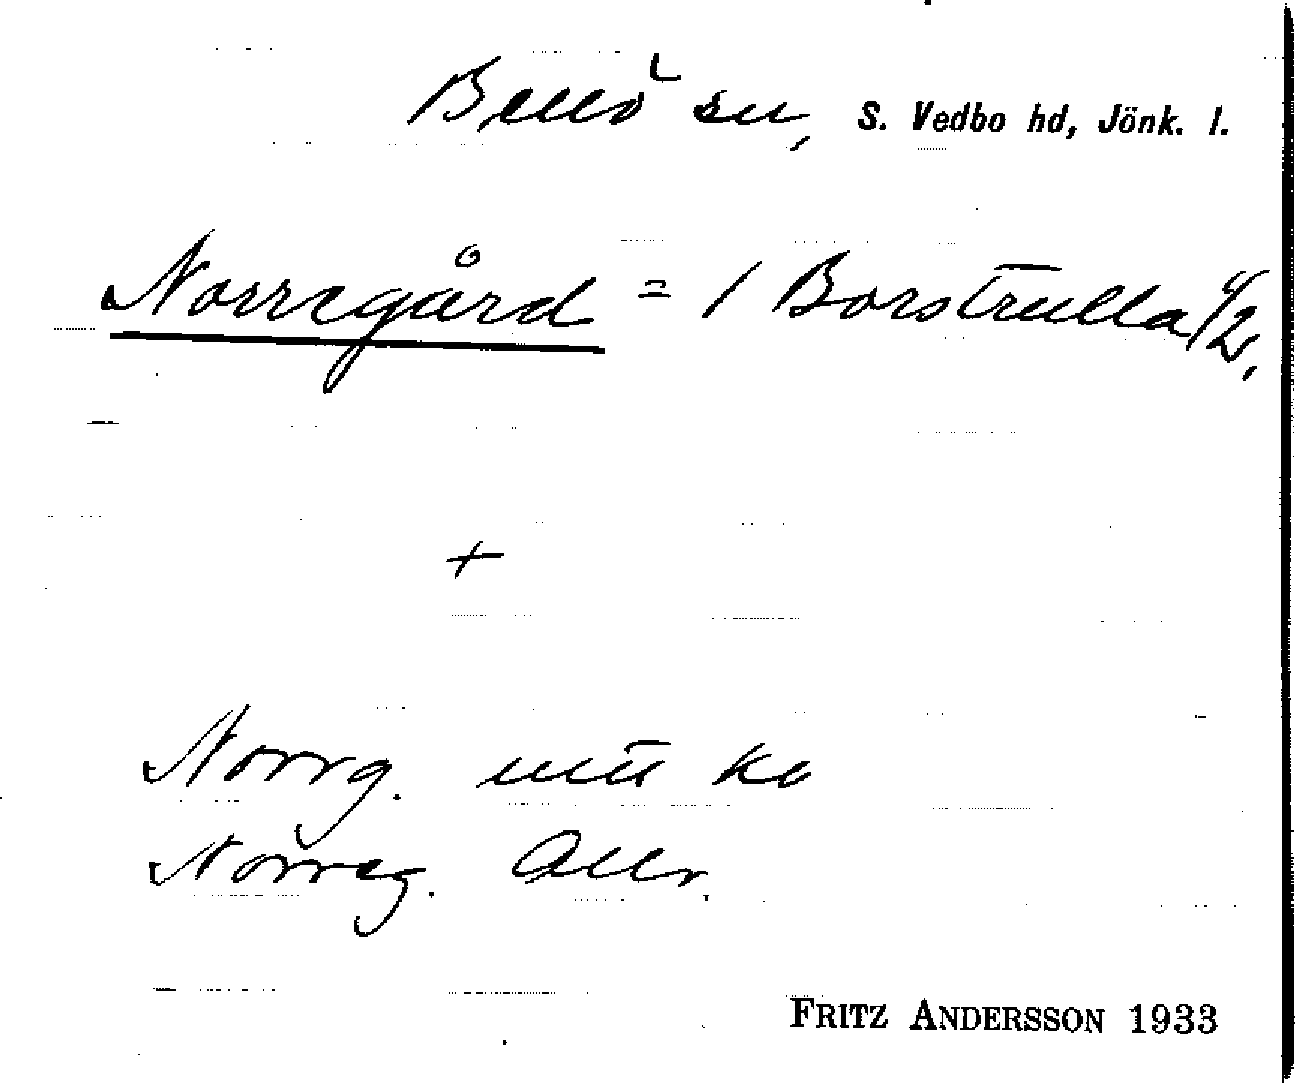 Bellö sn, S. Vedbo hd, Jönk. l.
Norregård = 1 Borstrulla 4/2,
+
Norrg. mtt ko
Norreg. Allr.
FRITZ ANDERSSON 1933